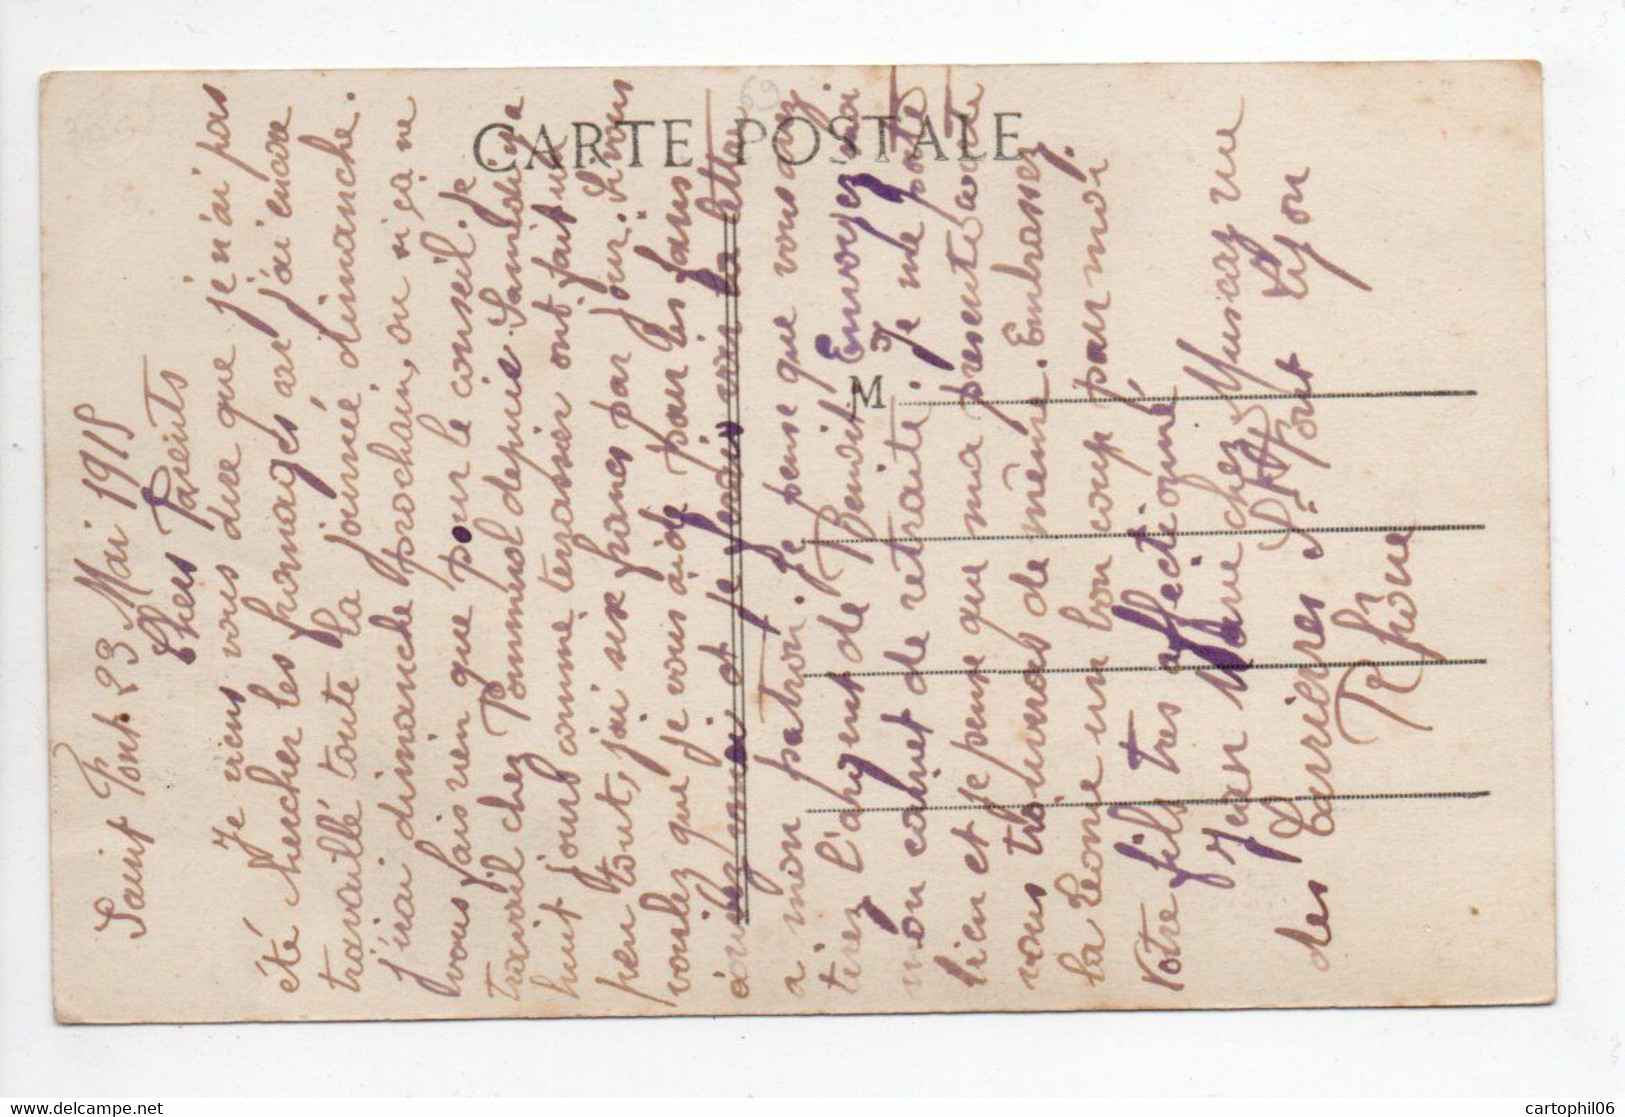 CARTE POSTALE
M
69
Saint Pont 23 Mai 1915
Chers Parents
Je viens vous dire que je n'ai pas
été checher les fromages car j'ai encore
travaillé toute la journé dimanche.
j'irai dimanche prochain, ou si ça ne
vous fais rien que pour le conseil. Je
travail chez Pommerol depuis Samedi il y a
huit jours comme terrassier ont fait un
peu tout, j'ai six francs par jour. Si vous
voulez que je vous aide pour les fans
écrivez moi et je ferais voir la lettre
a mon patron. Je pense que vous avez
tirez l'argent de Benoit Envoyez moi
mon carnet de retraite. Je me porte
bien et je pense que ma presente carte
vous trouveras de même. Embrassez
la Leonie un bon coup pour moi
Votre fils tres affectionné
Jean Marie chez Muscay rue
des Carrieres St Font Lyon
Rhône
cartophil06